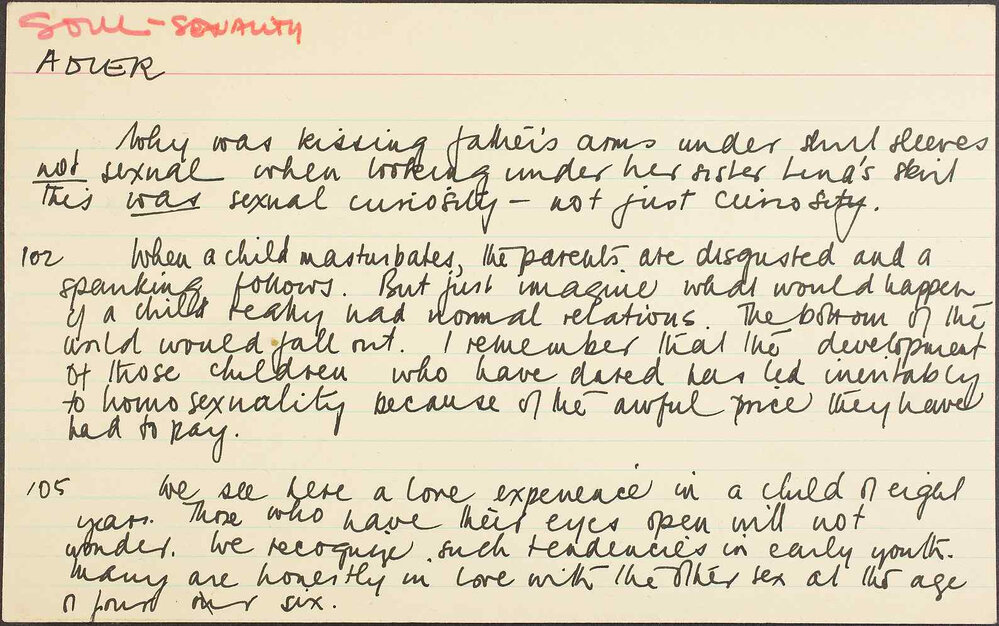 SOUL - SEXUALITY
ADLER
Why was kissing father's arms under shirt sleeves
not sexual when looking under her sister Lina's skirt
This was sexual curiosity - not just curiosity.
102 When a child masturbates, the parents are disgusted and a
spanking follows. But just imagine what would happen
if a child really had normal relations. The bottom of the
world would fall out. I remember that the development
of those children who have dared has led inevitably
to homosexuality because of the awful price they have
had to pay.
105 We see here a love experience in a child of eight
years. Those who have their eyes open will not
wonder. We recognize such tendencies in early youth.
Many are honestly in love with the other sex at the age
of four or six.